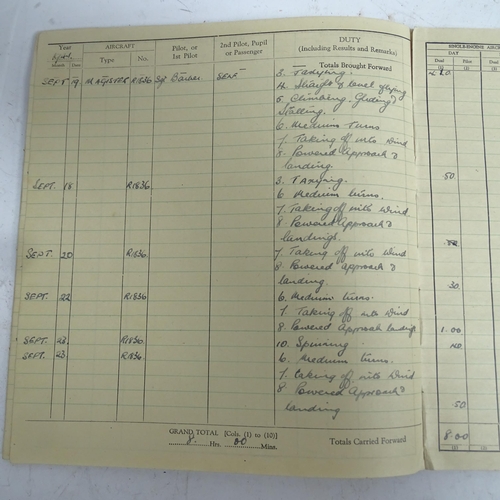 Year AIRCRAFT Pilot, or 1st Pilot 2nd Pilot, Pupil or Passenger DUTY (Including Results and Remarks) SINGLE-ENGINE AIRCR
Month Date Type No. DAY
Dual Pilot Dual
(1) (2) (3)
— — — Totals Brought Forward
SEPT MAGISTER R1836 Sgt SELF 3. Taxying.
4. Straight & level flying
5. Climbing. Gliding &
Stalling.
6. Medium Turns
7. Taking off into wind
8. Powered Approach &
landing. 50
SEPT. 18 R1836 3. Taxying.
6. Medium turns.
7. Taking off into Wind
8. Powered Approach &
landings.
SEPT. 20 R1836. 7. Taking off into wind
8. Powered approach &
landing. 30
SEPT. 22 R1836 6. Medium turns.
7. Taking off into Wind
8. Powered Approach landings 1.00
SEPT. 23. R1836. 10. Spinning. 40
SEPT. 23. R1836 6. Medium turns.
7. taking off into Wind
8. Powered Approach &
landing .50
GRAND TOTAL [Cols. (1) to (10)]
8 Hrs. 00 Mins. Totals Carried Forward 8.00
(1) (2) (3)